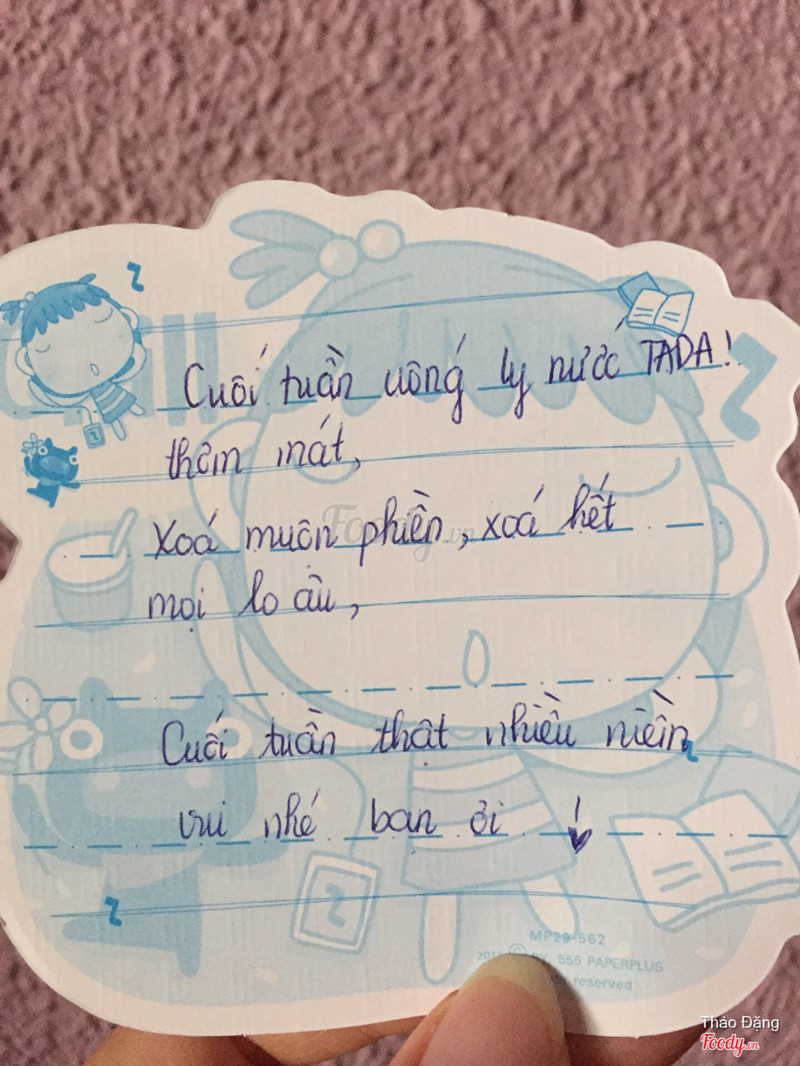 Cuối tuần uống ly nước TADA!
thơm mát,
Xoá muôn phiền, xoá hết
mọi lo âu,
Cuối tuần thật nhiều niềm
vui nhé bạn ơi
Foody.vn
MP29-562
BY. 555 PAPERPLUS
reserved
Thảo Đặng
Foody.vn